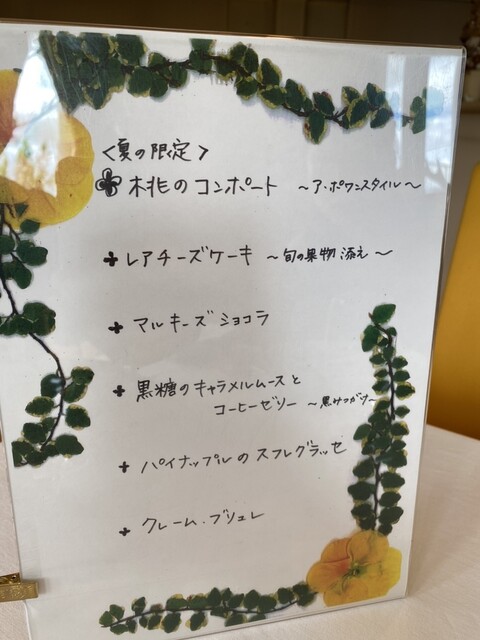 <夏の限定>
桃のコンポート ～ア・ポワンスタイル～
レアチーズケーキ ～旬の果物添え～
マルキーズショコラ
黒糖のキャラメルムースと
コーヒーゼリー ～黒みつがけ～
パイナップルのスフレグラッセ
クレーム・ブリュレ